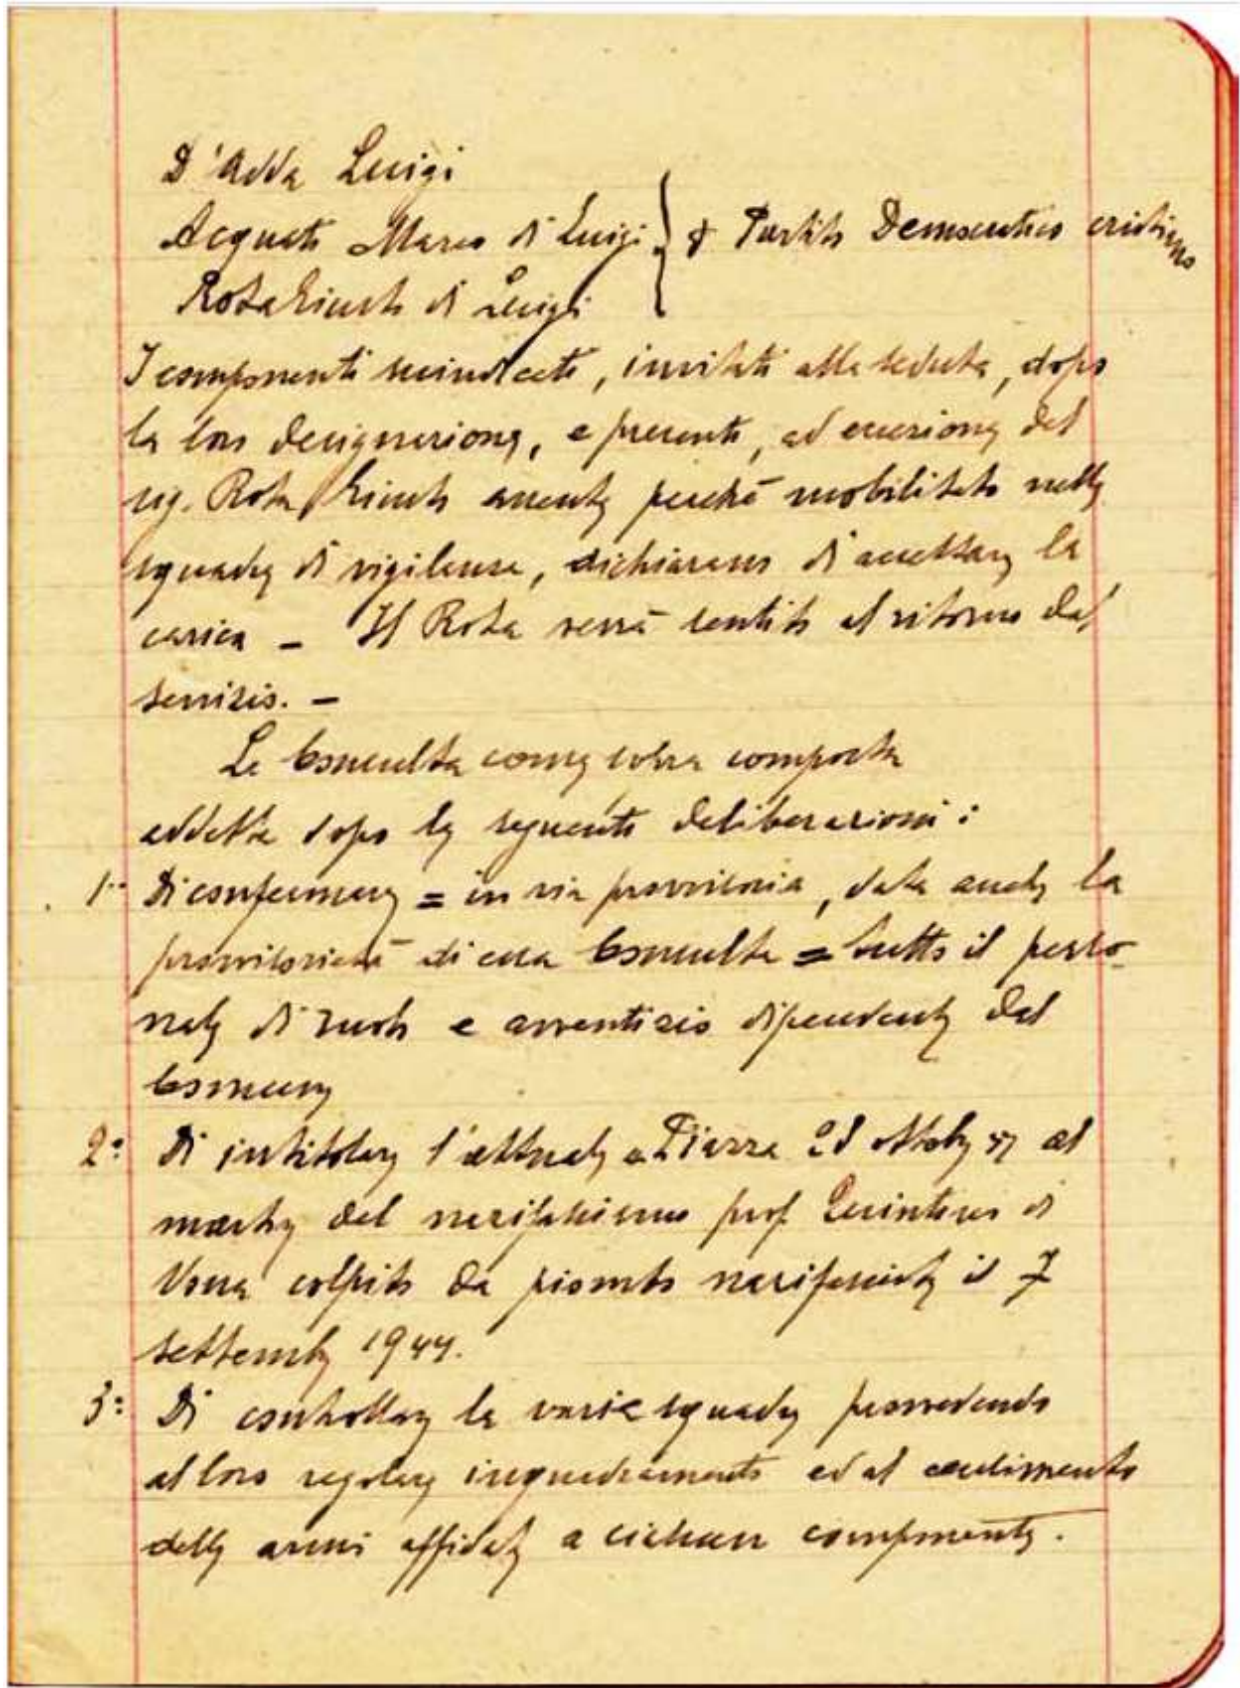 D'Adda Luigi
Acquati Marco di Luigi
Partito Democratico cristiano
Rota Giusto di Luigi
I componenti suindicati, invitati alla seduta, dopo
la loro designazione, e presenti, ad eccezione del
sig. Rota Giusto assente perchè mobilitato nelle
squadre di vigilanza, dichiarano di accettare la
carica - Il Rota verrà sentito al ritorno dal
servizio. -
La Consulta come sopra composta
adotta dopo le seguenti deliberazioni:
1° Di confermare = in via provvisoria, data anche la
provvisorietà di essa Consulta = tutto il perso-
nale di ruolo e avventizio dipendente dal
Comune
2° Di intitolare l'attuale "Piazza 28 ottobre" al
martire del nazifascismo prof. Quintino di
Vona colpito da piombo nazifascista il 7
settembre 1944.
3° Di controllare le varie squadre provvedendo
al loro regolare inquadramento ed al
delle armi affidate a ciascun componente.